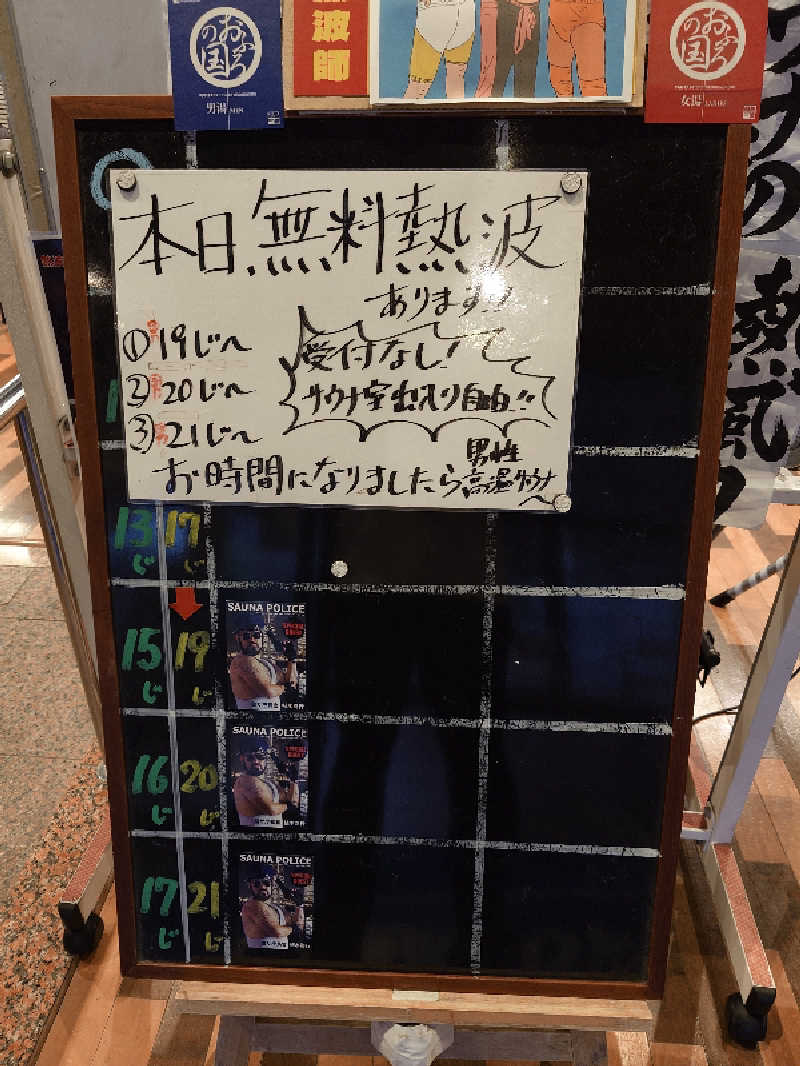 おふろの国
男湯
波師
おふろの国
女湯
本日無料熱波
あります!!
①19じ〜
②20じ〜
③21じ〜
受付なし!
サウナ室出入り自由!!
お時間になりましたら男性高温サウナへ
13じ
17じ
15じ
19じ
SAUNA POLICE
16じ
20じ
SAUNA POLICE
17じ
21じ
SAUNA POLICE
の熱風